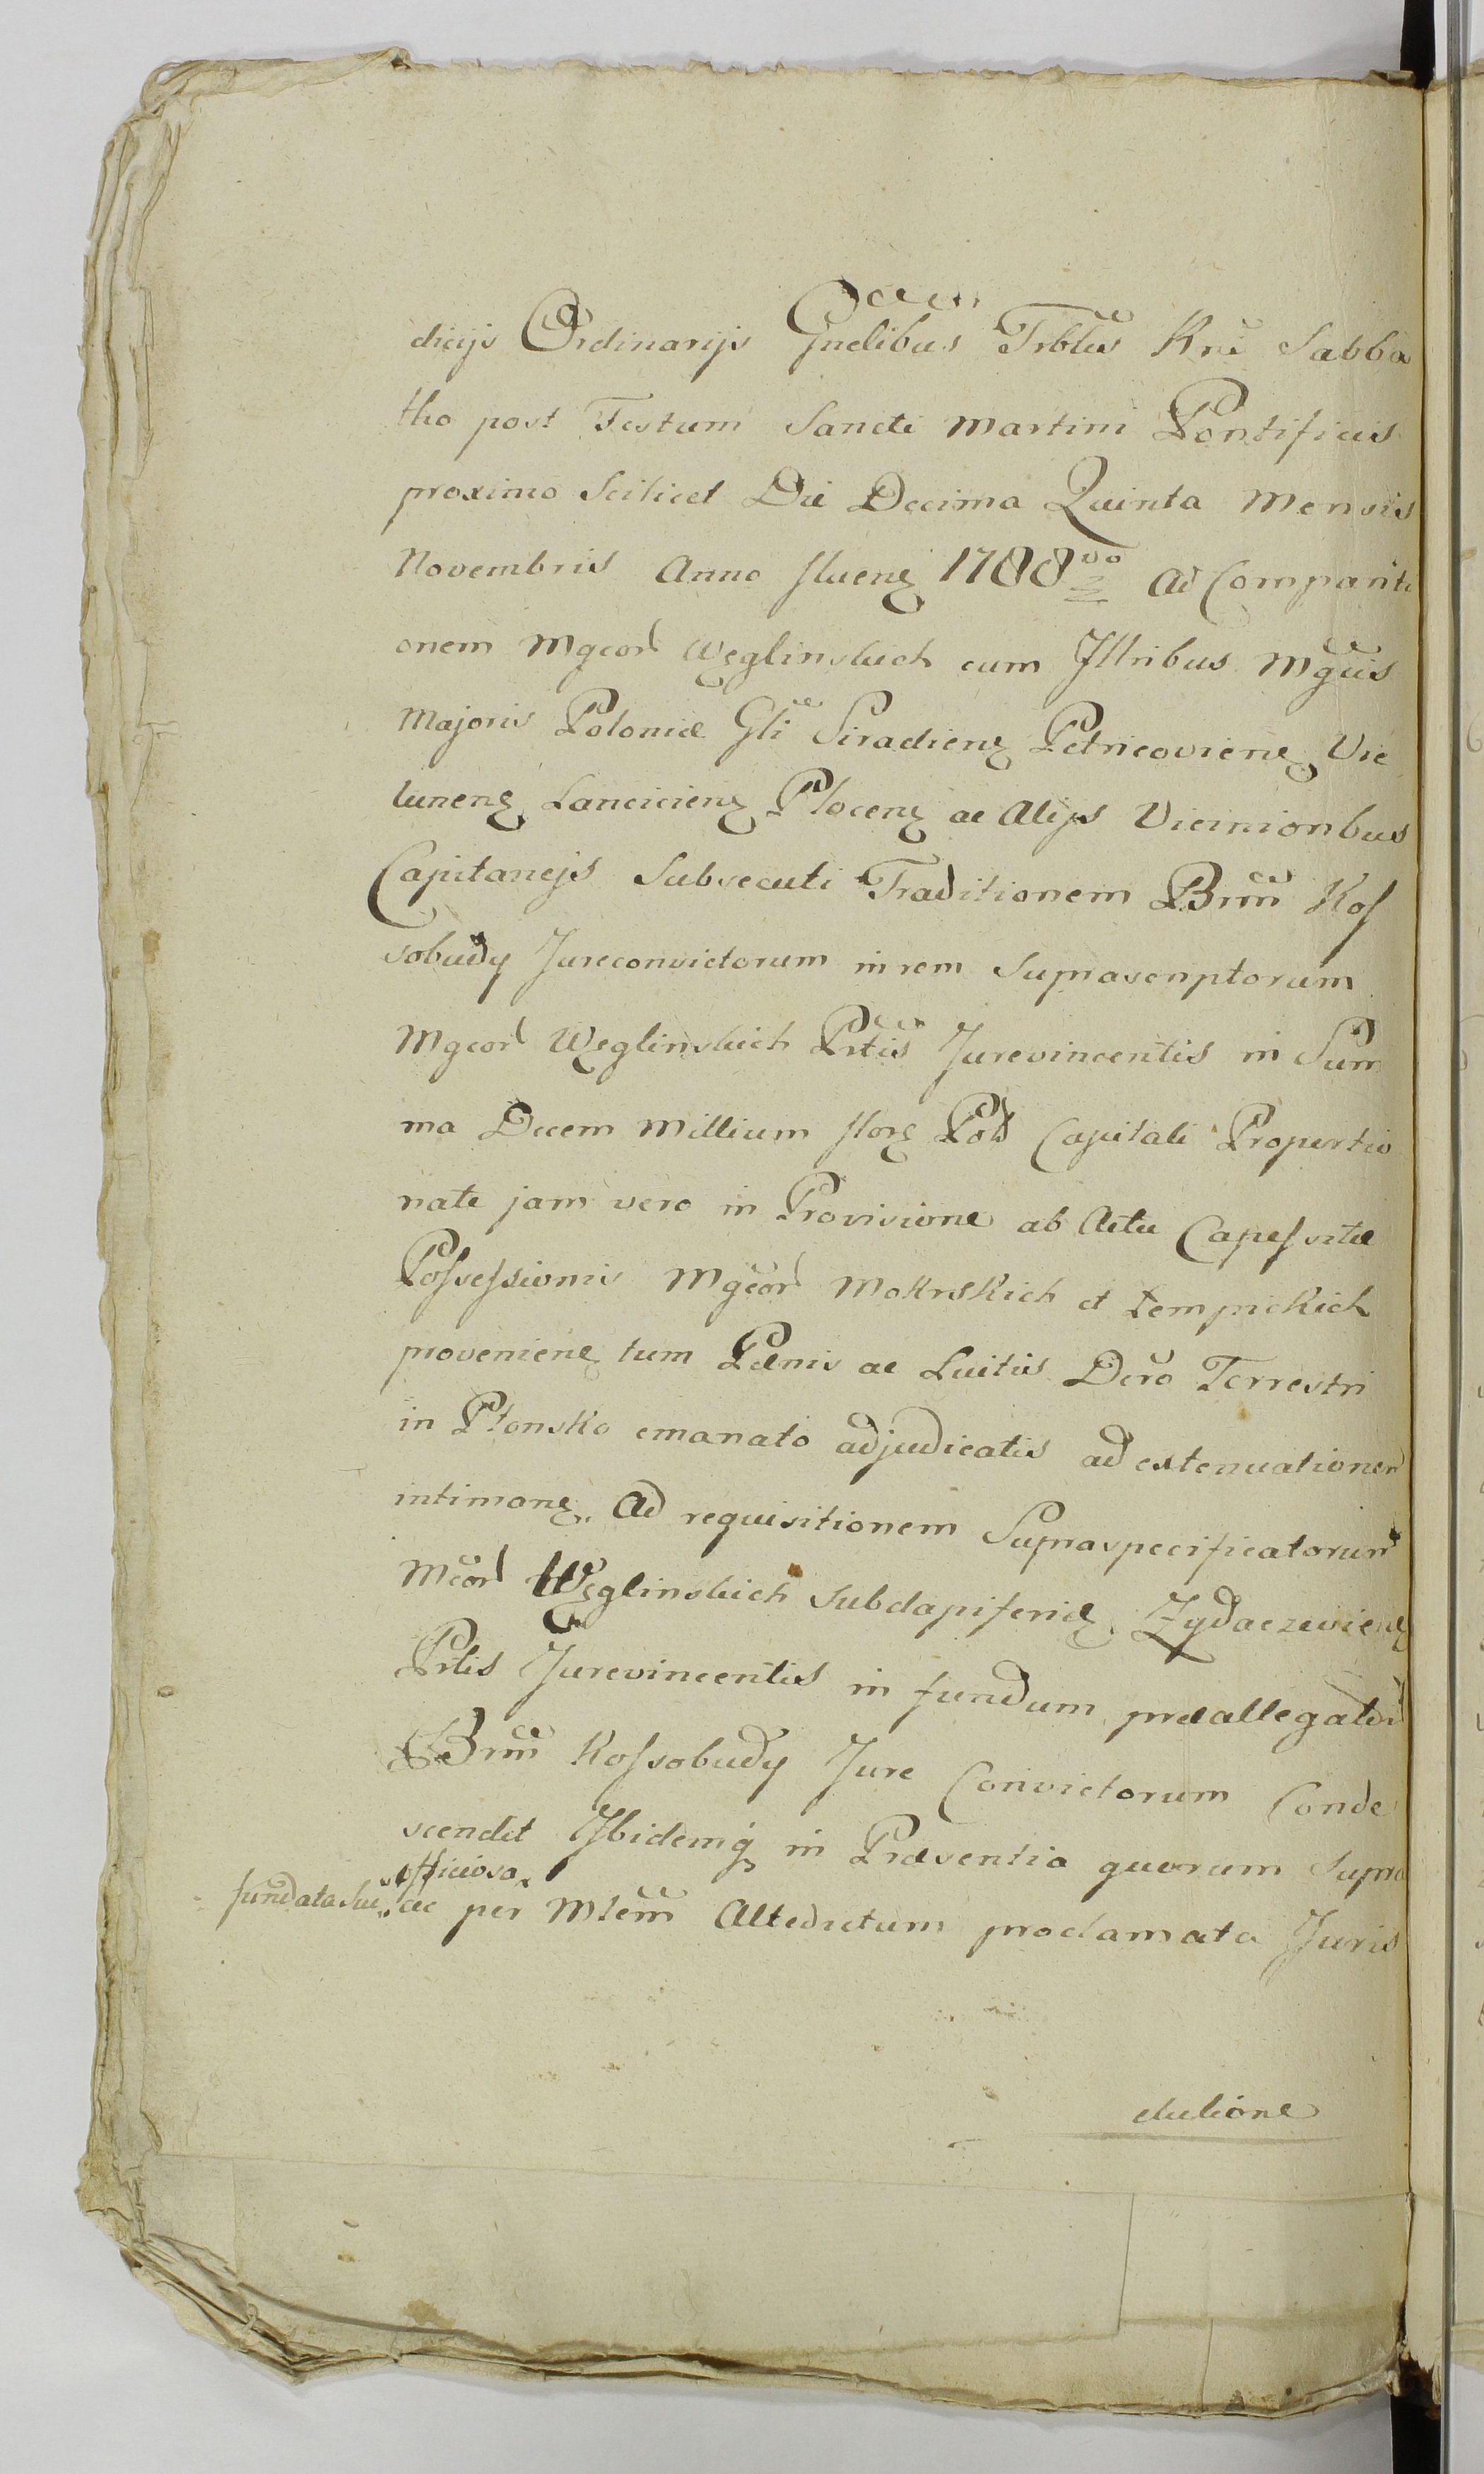 dicijs Ordinarijs Gnelibus Trbtus Rni Sabba
tho post Festum Sancti Martini Pontificis
proximo Scilicet Die Decima Quinta Mensis
Novembris Anno fluenȝ 1788vo Ad Compariti
onem Mgcor Węglinskich cum Jllribus Mgcis
Majoris Poloniæ Gli Siradienȝ Petricovienȝ Vie
lunenȝ Lancicienȝ Plocenȝ ac Alijs Vicinioribus
Capitanejs Subsecuti Traditionem Brum Kos
sobudy Jureconvictorum in rem Suprascriptorum
Mgcor Węglinskich Prtis Jurevincentis in Sum
ma Decem Millium florȝ Pol Capitali Propertio
nate jam vero in Provisione ab Actu Capessitæ
Possessionis Mgcor Mokrskich et Lempickich
provenienȝ tum Pænis ac Luitis Dcro Terrestri
in Płonsko emanato adjudicatis ad extenuationem
intimonȝ, Ad requisitionem Supraspecificatorum
Mcor Węglinskich Subdapiferid Zydaczewienȝ
Prtis Jurevincentis in fundum præallegator
Brum Kossobudy Jure Convictorum Conde
scendit Jbidemq in Præsentia quorum Supra
officiosa
fundata sue ac per Mlem Altedictum proclamata Juris
ductione